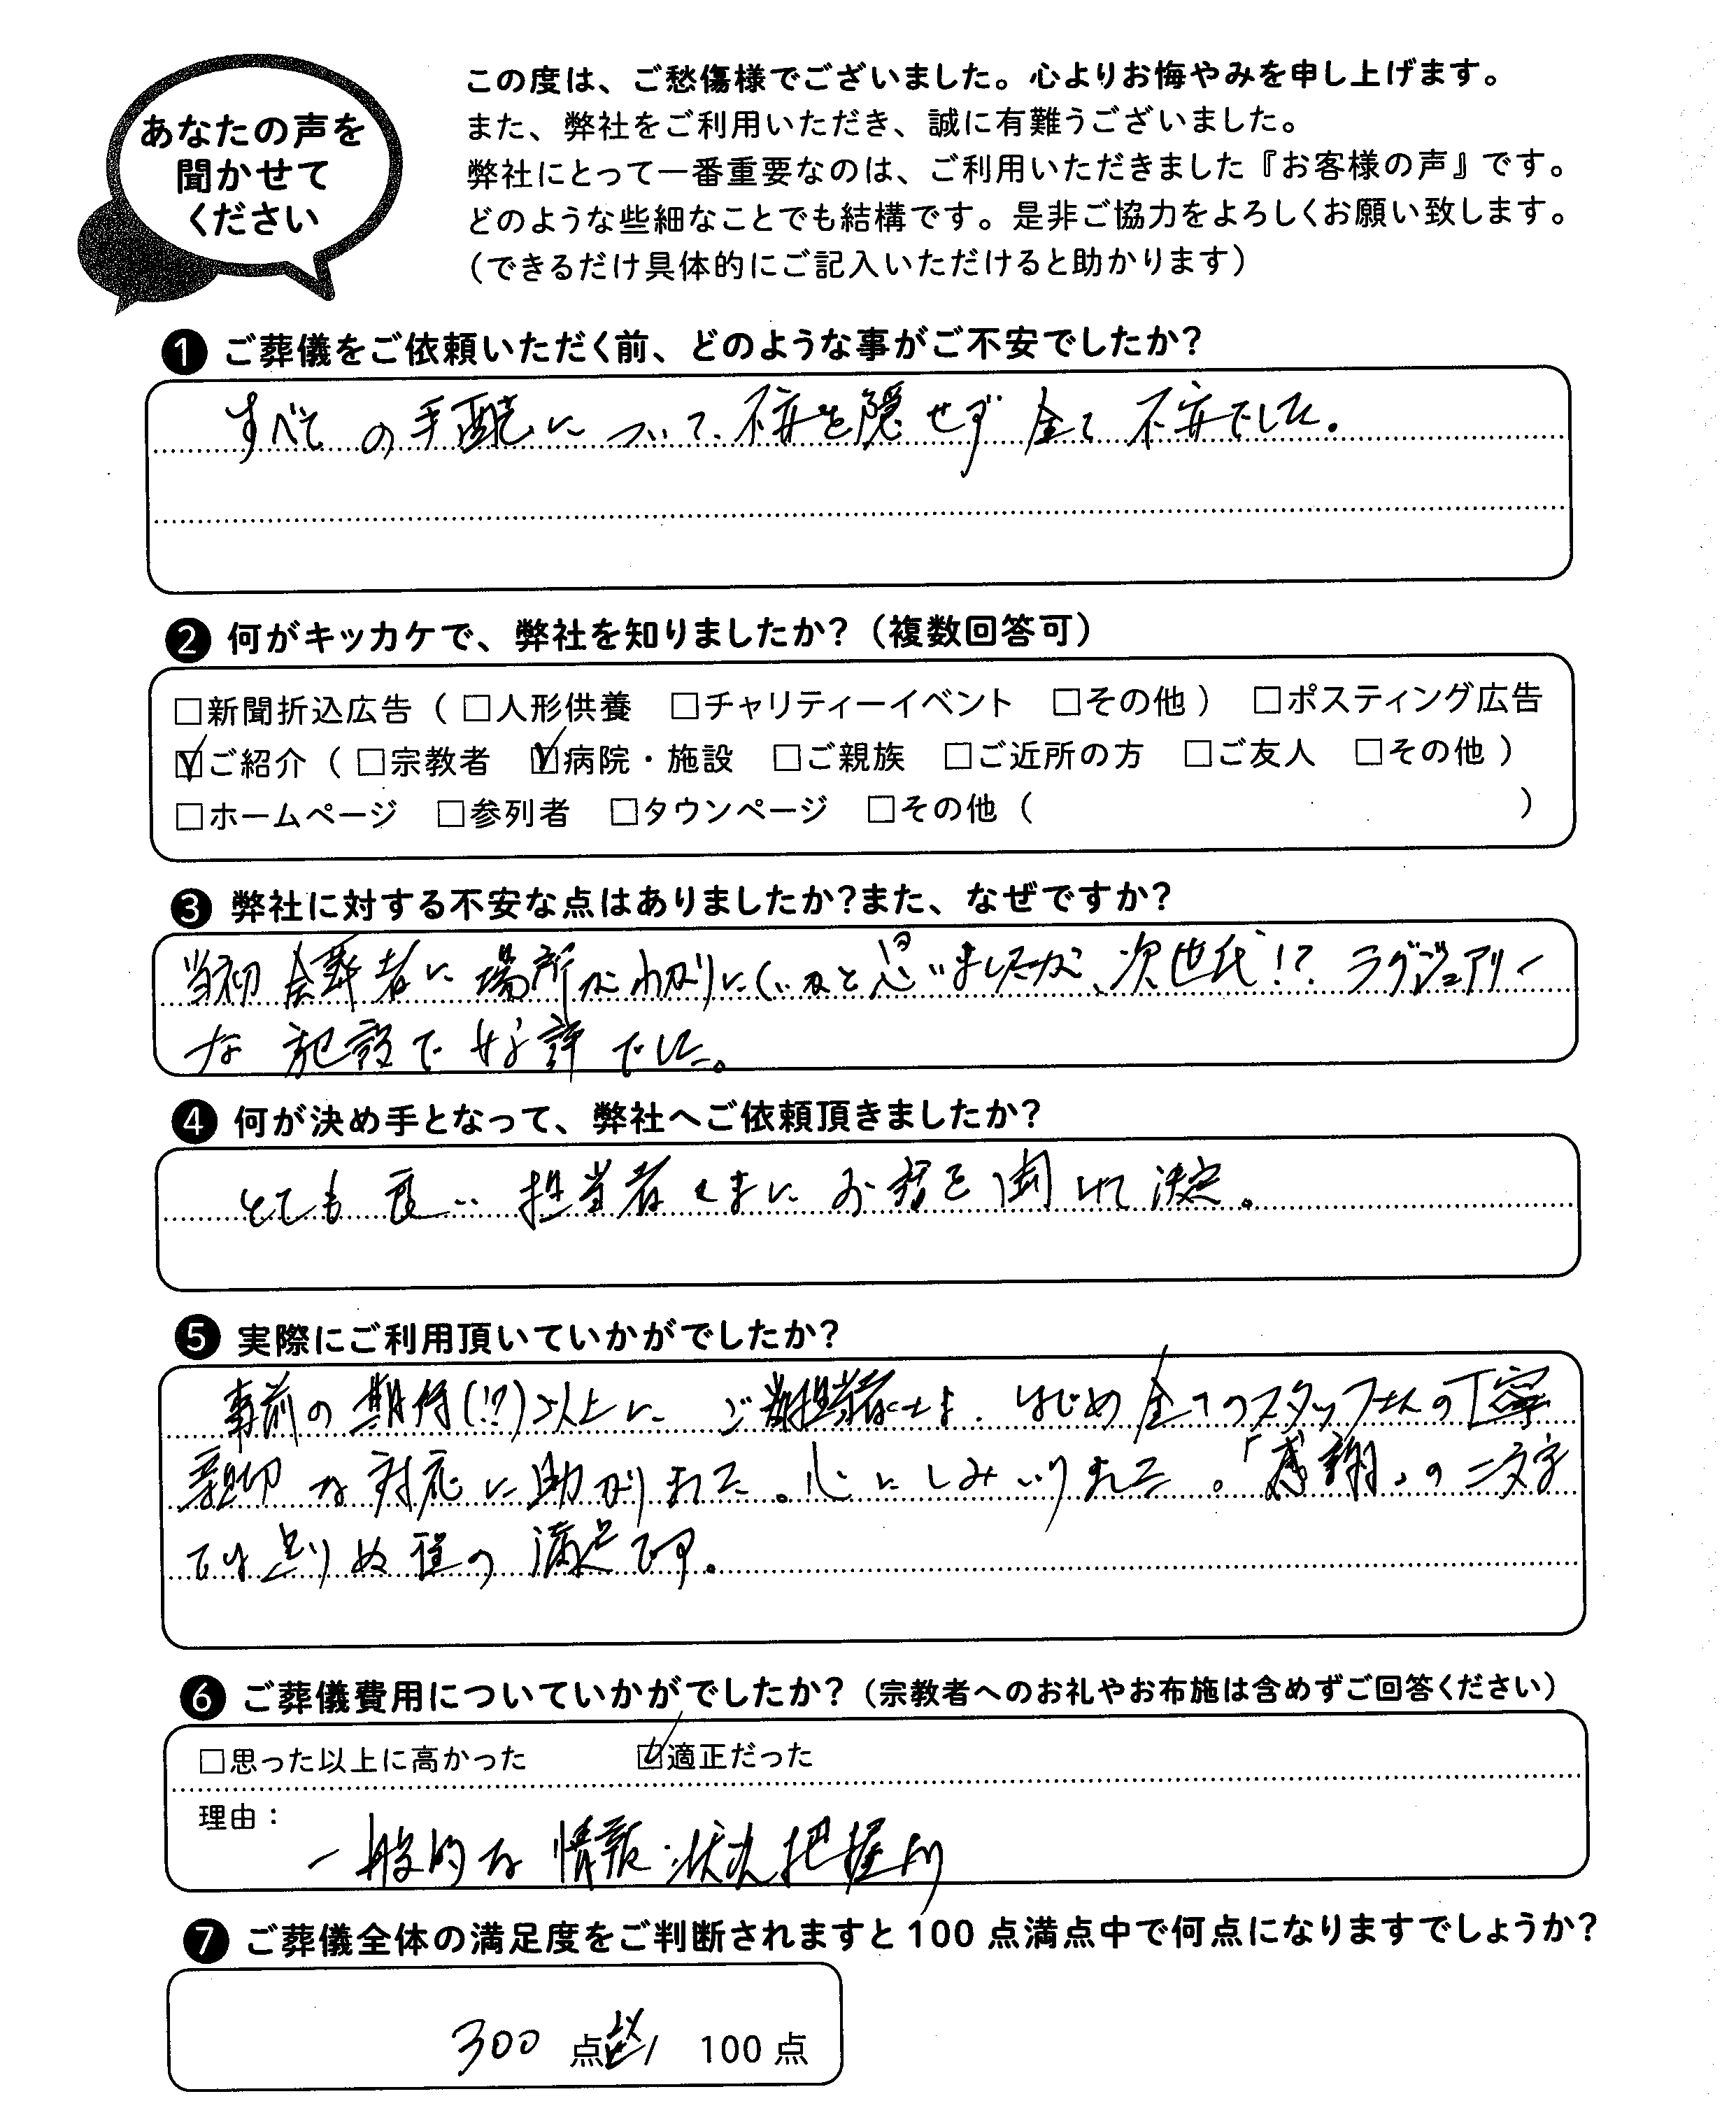 あなたの声を
聞かせて
ください
この度は、ご愁傷様でございました。心よりお悔やみを申し上げます。
また、弊社をご利用いただき、誠に有難うございました。
弊社にとって一番重要なのは、ご利用いただきました『お客様の声』です。
どのような些細なことでも結構です。是非ご協力をよろしくお願い致します。
（できるだけ具体的にご記入いただけると助かります）
❶ ご葬儀をご依頼いただく前、どのような事がご不安でしたか?
すべての手配について、不安を隠せず全て不安でした。
❷ 何がキッカケで、弊社を知りましたか?（複数回答可）
□新聞折込広告（ □人形供養 □チャリティーイベント □その他 ） □ポスティング広告
☑ご紹介（ □宗教者 ☑病院・施設 □ご親族 □ご近所の方 □ご友人 □その他 ）
□ホームページ □参列者 □タウンページ □その他（ ）
❸ 弊社に対する不安な点はありましたか?また、なぜですか?
当初会葬者に場所がわかりにくいかと思いましたが、次世代!? ラグジュアリー
な施設で好評でした。
❹ 何が決め手となって、弊社へご依頼頂きましたか?
とても良い担当者さまにお話を聞けて決定。
❺ 実際にご利用頂いていかがでしたか?
事前の期待(!?)以上に ご担当者さま はじめ全てのスタッフさんの丁寧
親切な対応に助かりました。心にしみいりました。「感謝」の二文字
では足りぬ程の満足です。
❻ ご葬儀費用についていかがでしたか?（宗教者へのお礼やお布施は含めずご回答ください）
□思った以上に高かった ☑適正だった
理由：
一般的な情報・状況把握より
❼ ご葬儀全体の満足度をご判断されますと100点満点中で何点になりますでしょうか?
300 点 / 100点